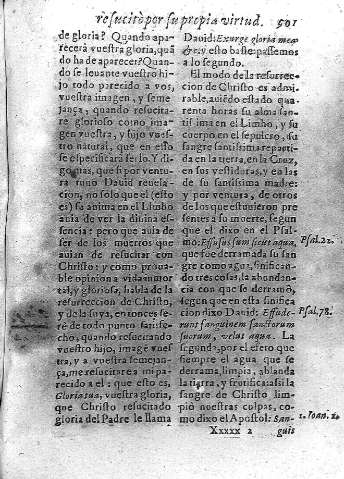 resucitò por su propia virtud. 501
de gloria? Quando apa-
recerà vuestra gloria, quã
do ha de aparecer? Quan-
do se leuante vuestro hi-
jo todo parecido a vos,
vuestra imagen, y seme
jança, quando resucita-
re glorioso como ima-
gen vuestra, y hijo vues-
tro natural, que en esto
se especificarà serlo. Y di-
go mas, que si por ven-
tura tuuo Dauid reuela-
cion, no solo que el (esto
es) su anima en el Limbo
auia de ver la diuina es-
sencia: pero que auia de
ser de los muertos que
auian de resucitar con
Christo: y como proua-
ble opinion a vida inmor
tal, y gloriosa, habla de la
resurreccion de Christo,
y de la suya, entonces se-
rè de todo punto satisfe-
cho, quando resucitando
vuestro hijo, image vues
tra, y a vuestra semejan-
ça, me resucitare a mi pa-
recido a el: que esto es,
Gloria tua, vuestra gloria,
que Christo resucitado
gloria del Padre le llama
Dauid: Exurge gloria mea
&c. y esto baste: passemos
a lo segundo.
El modo de la resurrec-
cion de Christo es admi-
rable, auiẽdo estado qua-
renta horas su alma san-
tissima en el Limbo, y su
cuerpo en el sepulcro, su
sangre santissima reparti-
da en la tierra, en la Cruz,
en sus vestiduras, y en las
de su santissima madre:
y por ventura, de otros
de los que estuuieron pre
sentes a su muerte, segun
que el dixo en el Psal-
mo: Effusus sum sicut aqua,
que fue derramada su san
gre como agua, significan-
do tres cosas, la abondan-
cia con que se derramò,
segun que en esta signifi-
cacion dixo Dauid: Effude-
runt sanguinem sanctorum
suorum, velut aqua. La
segunda, por el efeto que
siempre el agua que se
derrama, limpia, ablanda
la tierra, y frutifica: assi la
sangre de Christo lim-
piò nuestras culpas, co-
mo dixo el Apostol: San-
Xxxxx 2 guis
Psal. 22.
Psal. 78.
1. Ioan. 1.